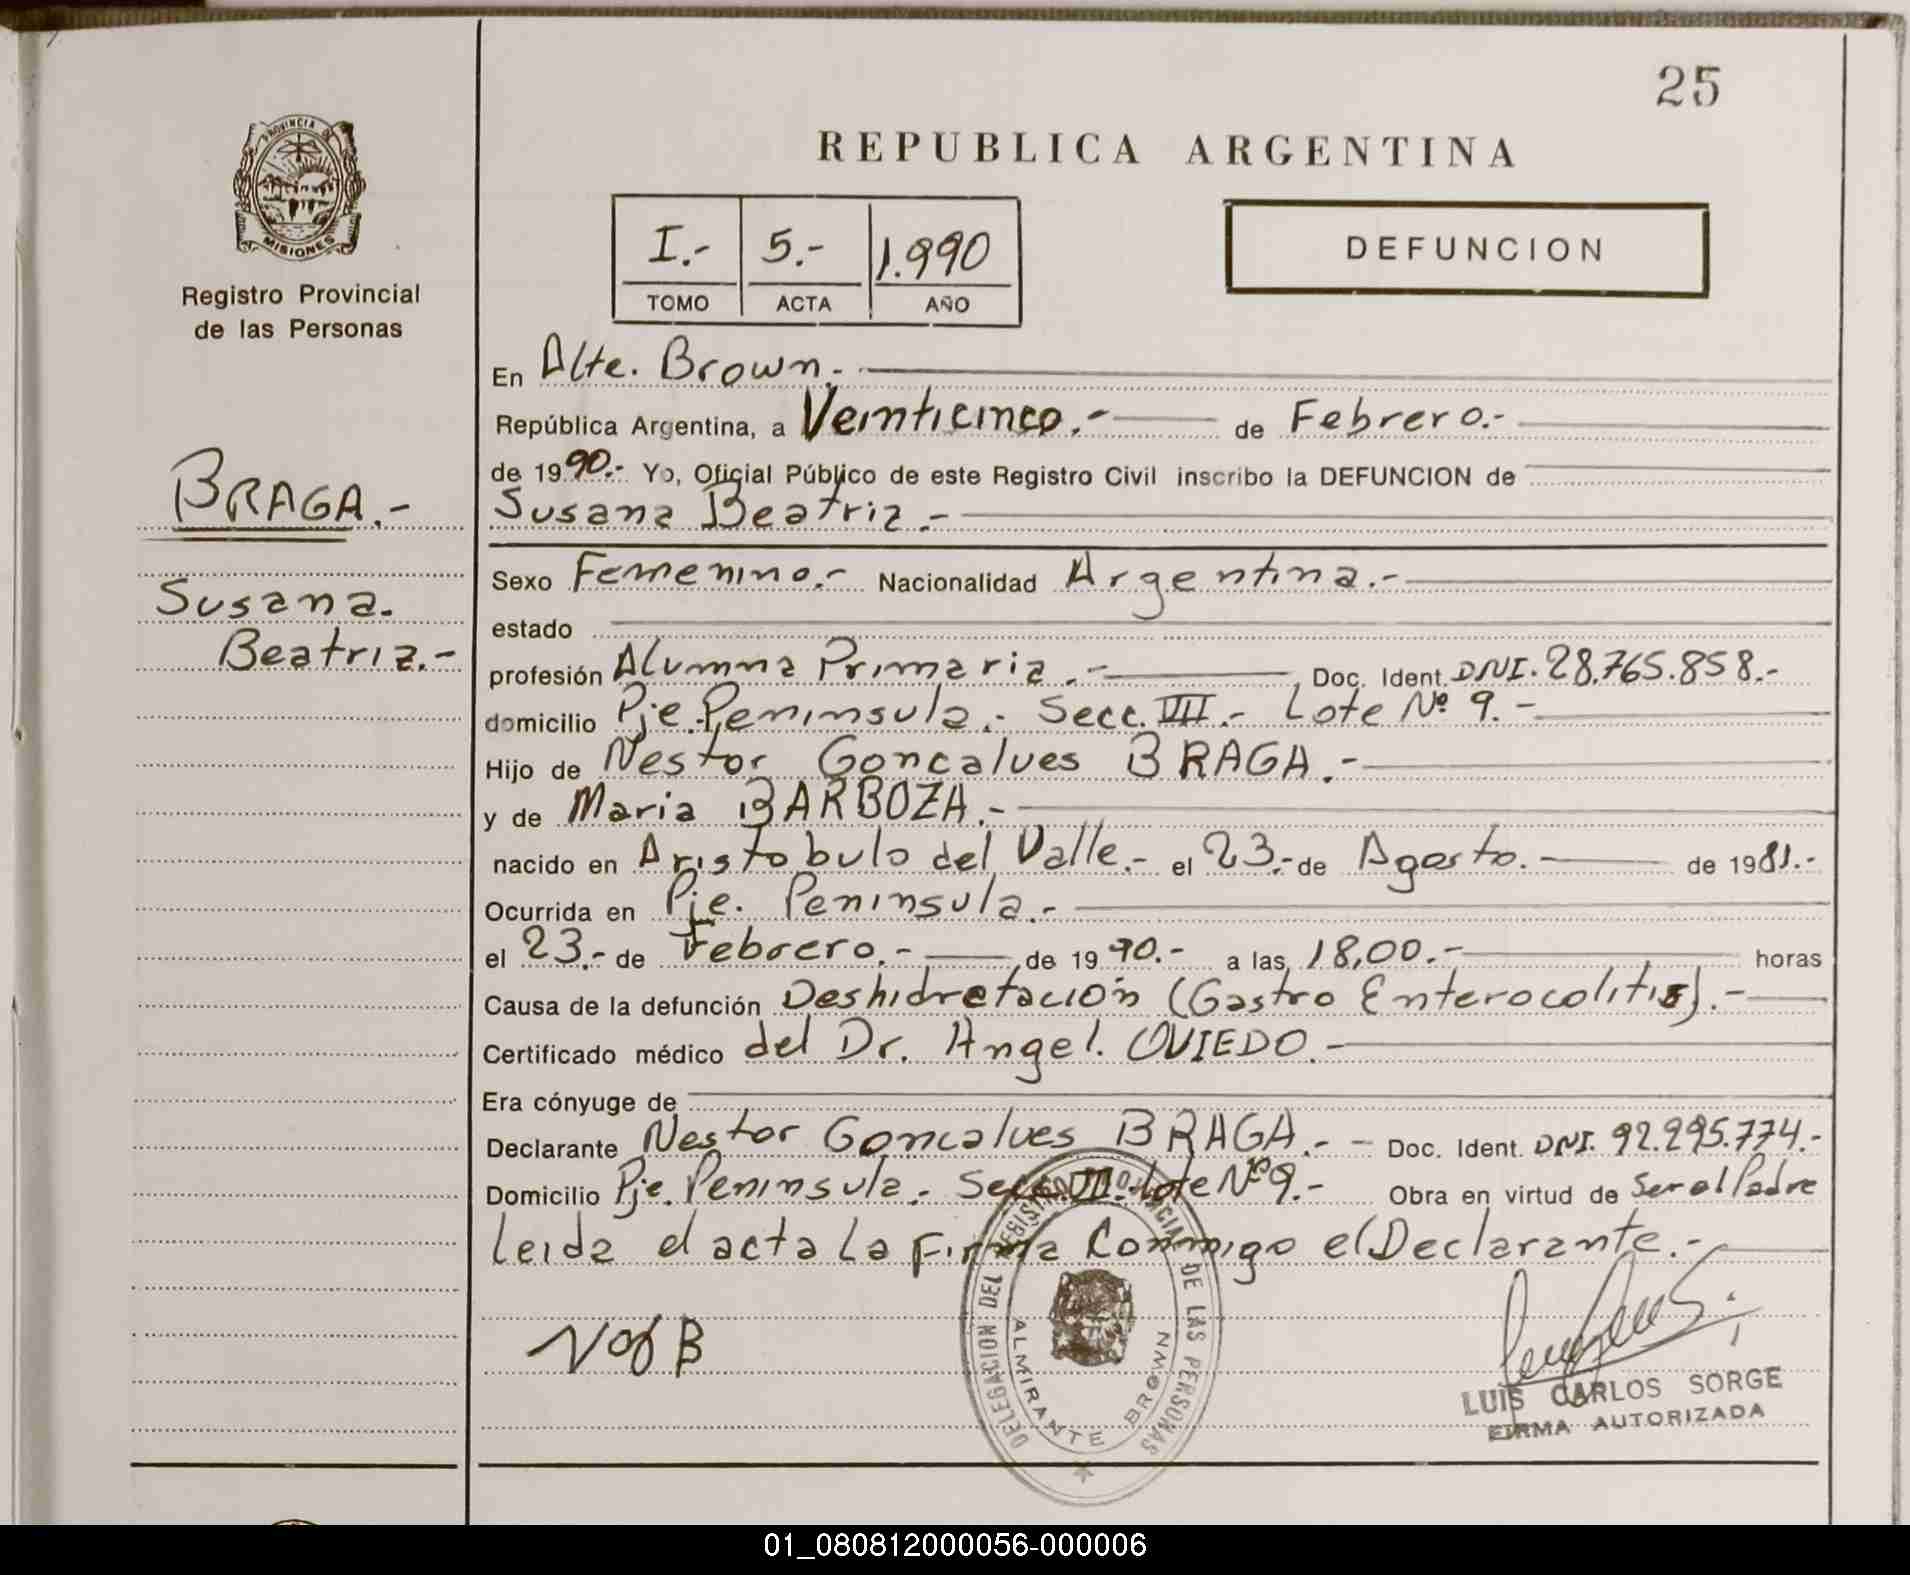 25
REPUBLICA ARGENTINA
PROVINCIA DE
MISIONES
Registro Provincial
de las Personas
I.- 5.- 1.990
TOMO ACTA AÑO
DEFUNCION
En Alte. Brown.-
República Argentina, a Veinticinco.- de Febrero.-
de 1990.- Yo, Oficial Público de este Registro Civil inscribo la DEFUNCION de
BRAGA.-
Susana Beatriz.-
Susana.
Beatriz.-
Sexo Femenino.- Nacionalidad Argentina.-
estado
profesión Alumna Primaria.- Doc. Ident. DNI. 28.765.858.-
domicilio Pje. Peninsula.- Secc. VII.- Lote Nº 9.-
Hijo de Nestor Goncalves BRAGA.-
y de Maria BARBOZA.-
nacido en Aristobulo del Valle.- el 23.- de Agosto.- de 1981.-
Ocurrida en Pje. Peninsula.-
el 23.- de Febrero.- de 1990.- a las 18,00.- horas
Causa de la defunción Deshidretación (Gastro Enterocolitis).-
Certificado médico del Dr. Angel. OVIEDO.-
Era cónyuge de
Declarante Nestor Goncalves BRAGA.- - Doc. Ident. DNI. 92.295.774.-
Domicilio Pje. Peninsula.- Secc. VII.- Lote Nº 9.- Obra en virtud de Ser el Padre
Leida el acta La Firma Conmigo el Declarante.-
DELEGACION DEL REGISTRO PROVINCIAL DE LAS PERSONAS
ALMIRANTE BROWN
LUIS CARLOS SORGE
FIRMA AUTORIZADA
01_080812000056-000006